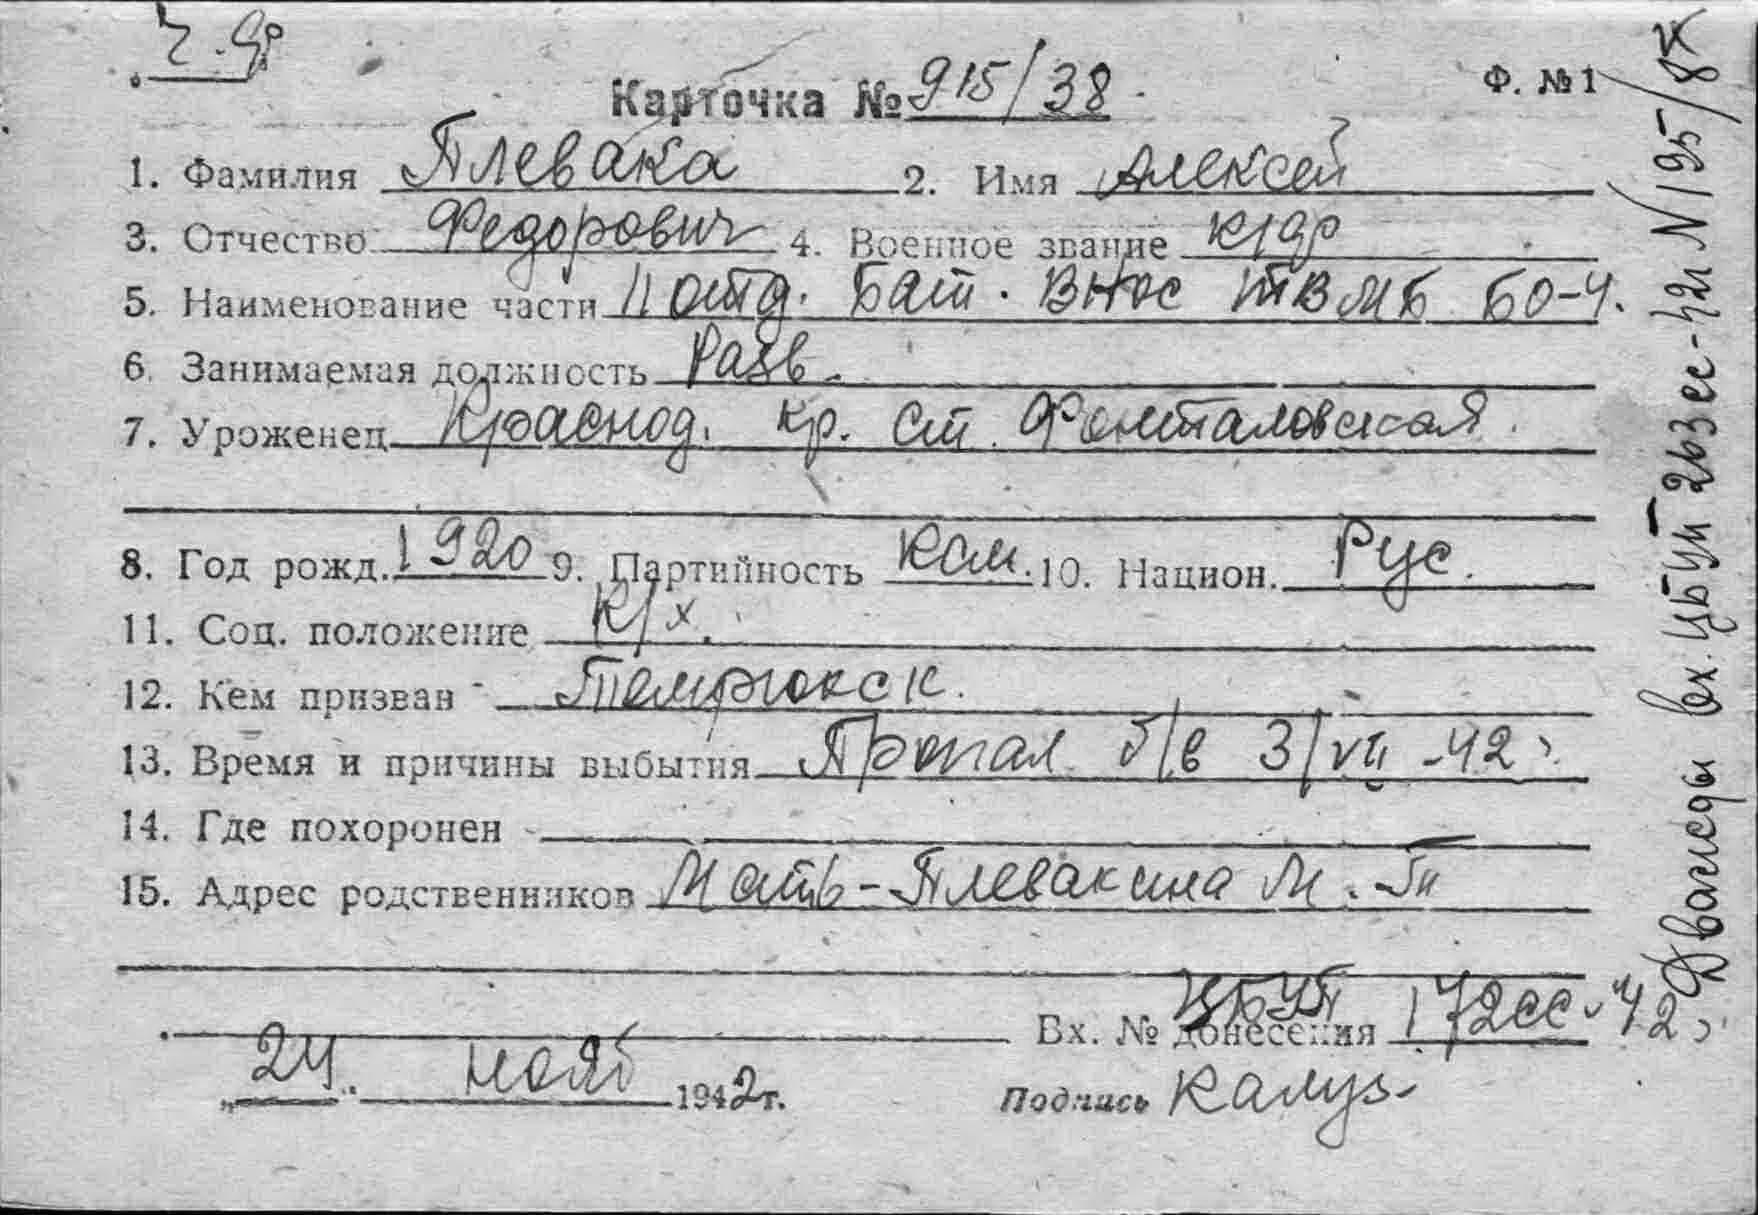 Ч. Ф.
Карточка № 915/38
Ф. № 1
1. Фамилия Плевака 2. Имя Алексей
3. Отчество Федорович 4. Военное звание к/фр
5. Наименование части 11 отд. Бат. ВНОС ТВМБ БО-Ч.
6. Занимаемая должность Разв.
7. Уроженец Краснод. кр. ст. Фонталовская.
8. Год рожд. 1920 9. Партийность Ксм. 10. Национ. Рус.
11. Соц. положение К/х.
12. Кем призван Темрюкск.
13. Время и причины выбытия Пропал б/в 3/VII-42г.
14. Где похоронен
15. Адрес родственников Мать - Плевакина М. Гп
ЦБУП
Вх. № донесения 172сс-42г.
„24“ нояб 1942г.
Подпись
вх. ЦБУП 263сс-42г N 195/